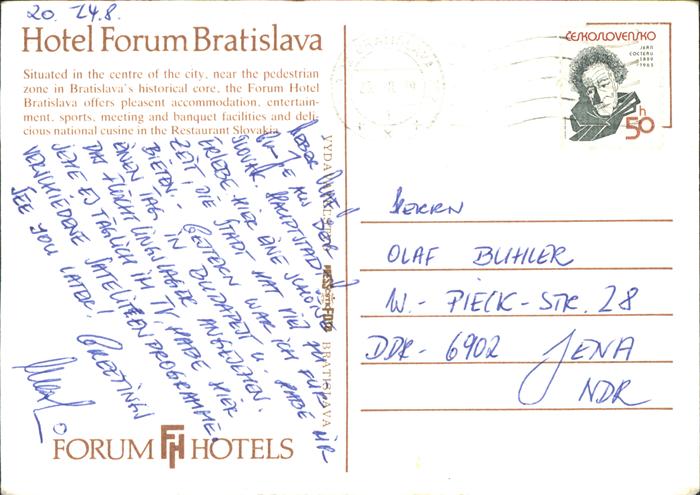 20. 24.8.
Hotel Forum Bratislava
Situated in the centre of the city, near the pedestrian
zone in Bratislava's historical core, the Forum Hotel
Bratislava offers pleasent accommodation, entertain-
ment, sports, meeting and banquet facilities and deli-
cious national cusine in the Restaurant Slovakia.
LIEBER OLAF!
GRÜßE AUS DER
SLOVAK. HAUPTSTADT!
ERLEBE HIER EINE SCHÖNE
ZEIT, DIE STADT HAT VIEL ZU
BIETEN. GESTERN WAR ICH FÜR
EINEN TAG IN BUDAPEST U. HABE MIR
DAS FLÜCHTLINGSLAGER ANGESEHEN.
SEHE ES TÄGLICH IM TV, HABE HIER
VERSCHIEDENE SATELITENPROGRAMME.
SEE YOU LATER! GREETINGS
FORUM HOTELS
BRATISLAVA
ČESKOSLOVENSKO
JEAN
COCTEAU
1889
1963
50 h
HERRN
OLAF BUHLER
W.-PIECK-STR. 28
DDR-6902 JENA
NDR